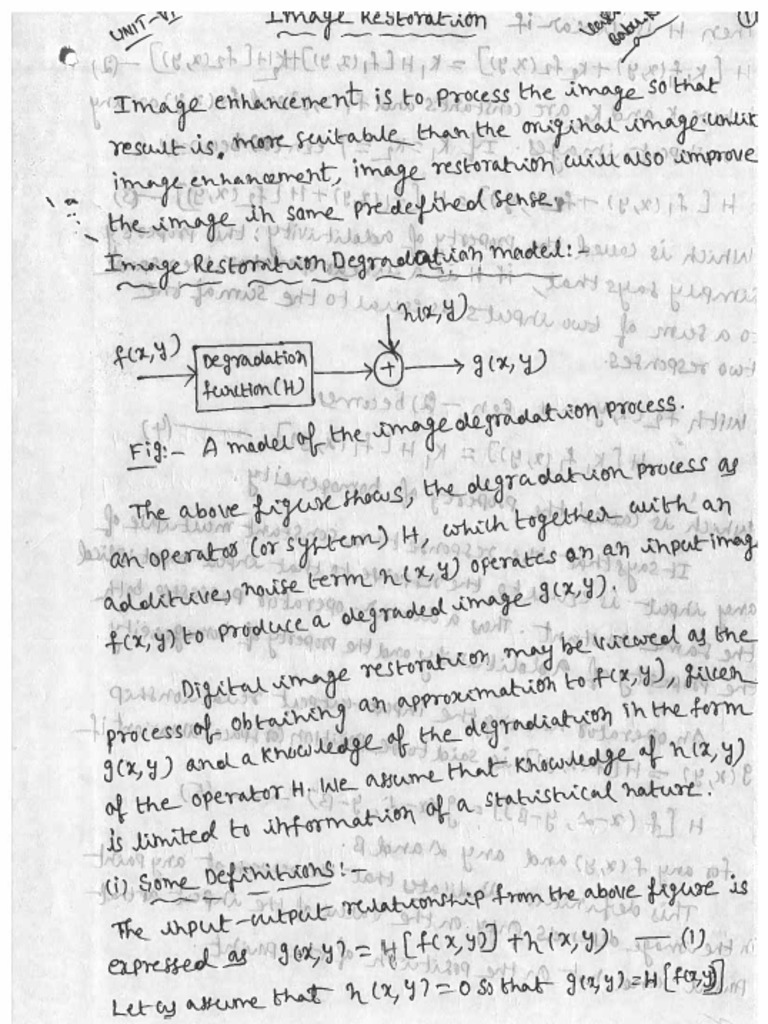 UNIT-VI
Image Restoration
(1)
Image enhancement is to process the image so that
result is more suitable than the original image. unlik
image enhancement, image restoration will also improve
the image in some predefined sense.
Image Restoration Degradation model:-
n(x,y)
f(x,y)
Degradation
function(H)
+
g(x,y)
Fig:- A model of the image degradation process.
The above figure shows, the degradation process as
an operator (or system) H, which together with an
additive, noise term n(x,y) operates on an input imag
f(x,y) to produce a degraded image g(x,y).
Digital image restoration may be viewed as the
process of obtaining an approximation to f(x,y), given
g(x,y) and a knowledge of the degradiation in the form
of the operator H. We assume that knowledge of n(x,y)
is limited to information of a statistical nature.
(i) Some Definitions:-
The input-output relationship from the above figure is
expressed as g(x,y) = H[f(x,y)] + n(x,y) — (1)
Let us assume that n(x,y) = 0 so that g(x,y) = H[f(x,y)]